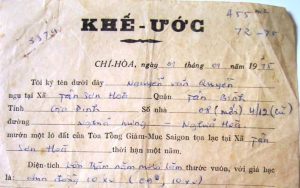 455 m2
33794
12-75
KHẾ-ƯỚC
CHÍ-HÒA, ngày 01 tháng 01 năm 1975
Tôi ký tên dưới đây Nguyễn văn Quyền
ngụ tại Xã Tân Sơn Hoà Quận Tân Bình
Tỉnh Gia Định Số nhà 4/12 (cũ)
đường Nghĩa hưng Nghĩa Hoà
mướn một lô đất của Tòa Tổng Giám-Mục Saigon tọa lạc tại Xã Tân
Sơn Hoà thời hạn một năm.
Diện-tích bốn trăm năm mươi lăm thước vuông, với giá hạc
là